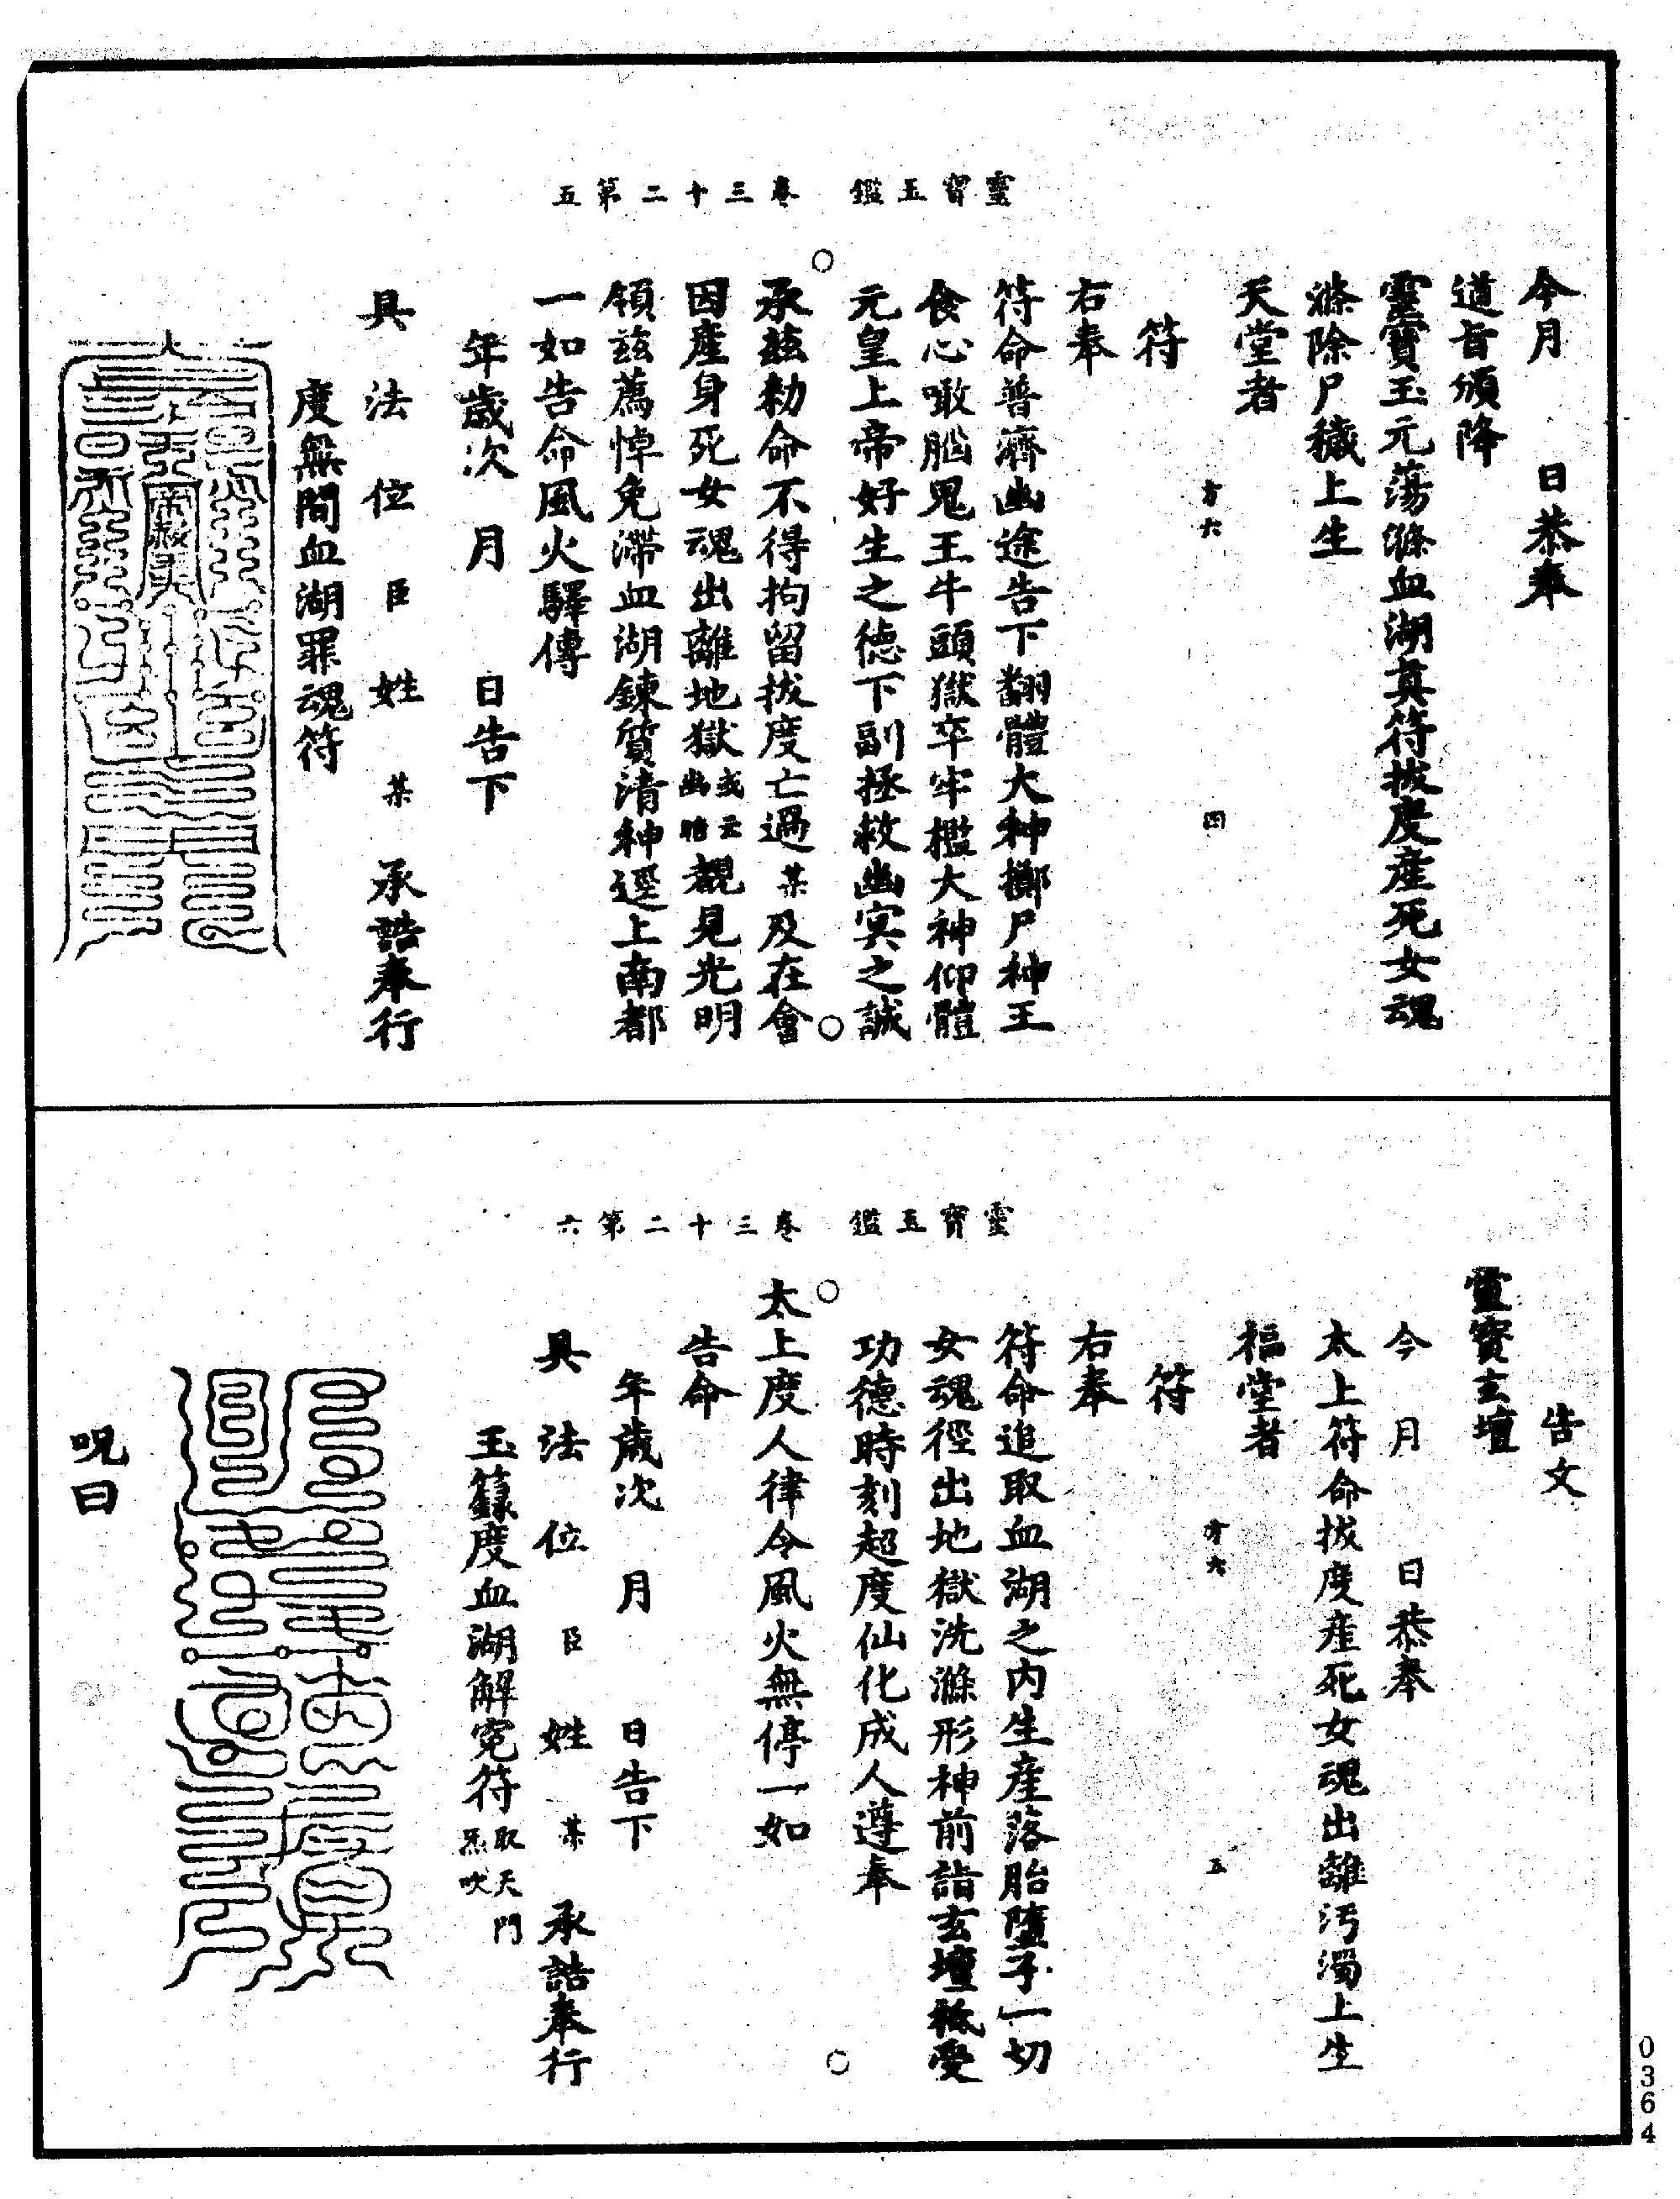 靈寶玉鑑　卷三十二第五
今月　　日恭奉
道旨頒降
靈寶玉元蕩滌血湖真符拔度產死女魂
滌除尸穢上生
天堂者
方六　四
符
右奉
符命普濟幽途告下翻體大神擲尸神王
食心噉腦鬼王牛頭獄卒牢檻大神仰體
元皇上帝好生之德下副拯救幽冥之誠
承茲勑命不得拘留拔度亡過某及在會
因產身死女魂出離地獄或云幽胎覩見光明
領茲薦悼免滯血湖鍊質清神逕上南都
一如告命風火驛傳
年歲次　月　　日告下
具　法　位　臣　姓　某　承誥奉行
度無間血湖罪魂符
靈寶玉鑑　卷三十二第六
告文
靈寶玄壇
今　月　　日恭奉
太上符命拔度產死女魂出離污濁上生
福堂者
方六　五
符
右奉
符命追取血湖之內生產落胎墮子一切
女魂徑出地獄洗滌形神前詣玄壇祗受
功德時刻超度仙化成人遵奉
太上度人律令風火無停一如
告命
年歲次　月　　日告下
具　法　位　臣　姓　某　承誥奉行
玉籙度血湖解冤符取天門炁吹
呪曰
0364